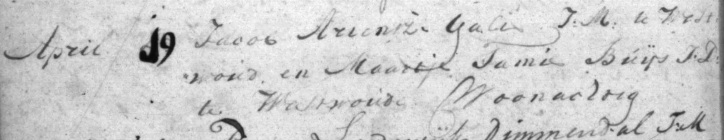 April 19 Jacob Ariensz. Galis J:M: te West
woud, en Maartje Jamis Buijs J:D:
te Westwoude Woonachtig
Dimmendal J:M